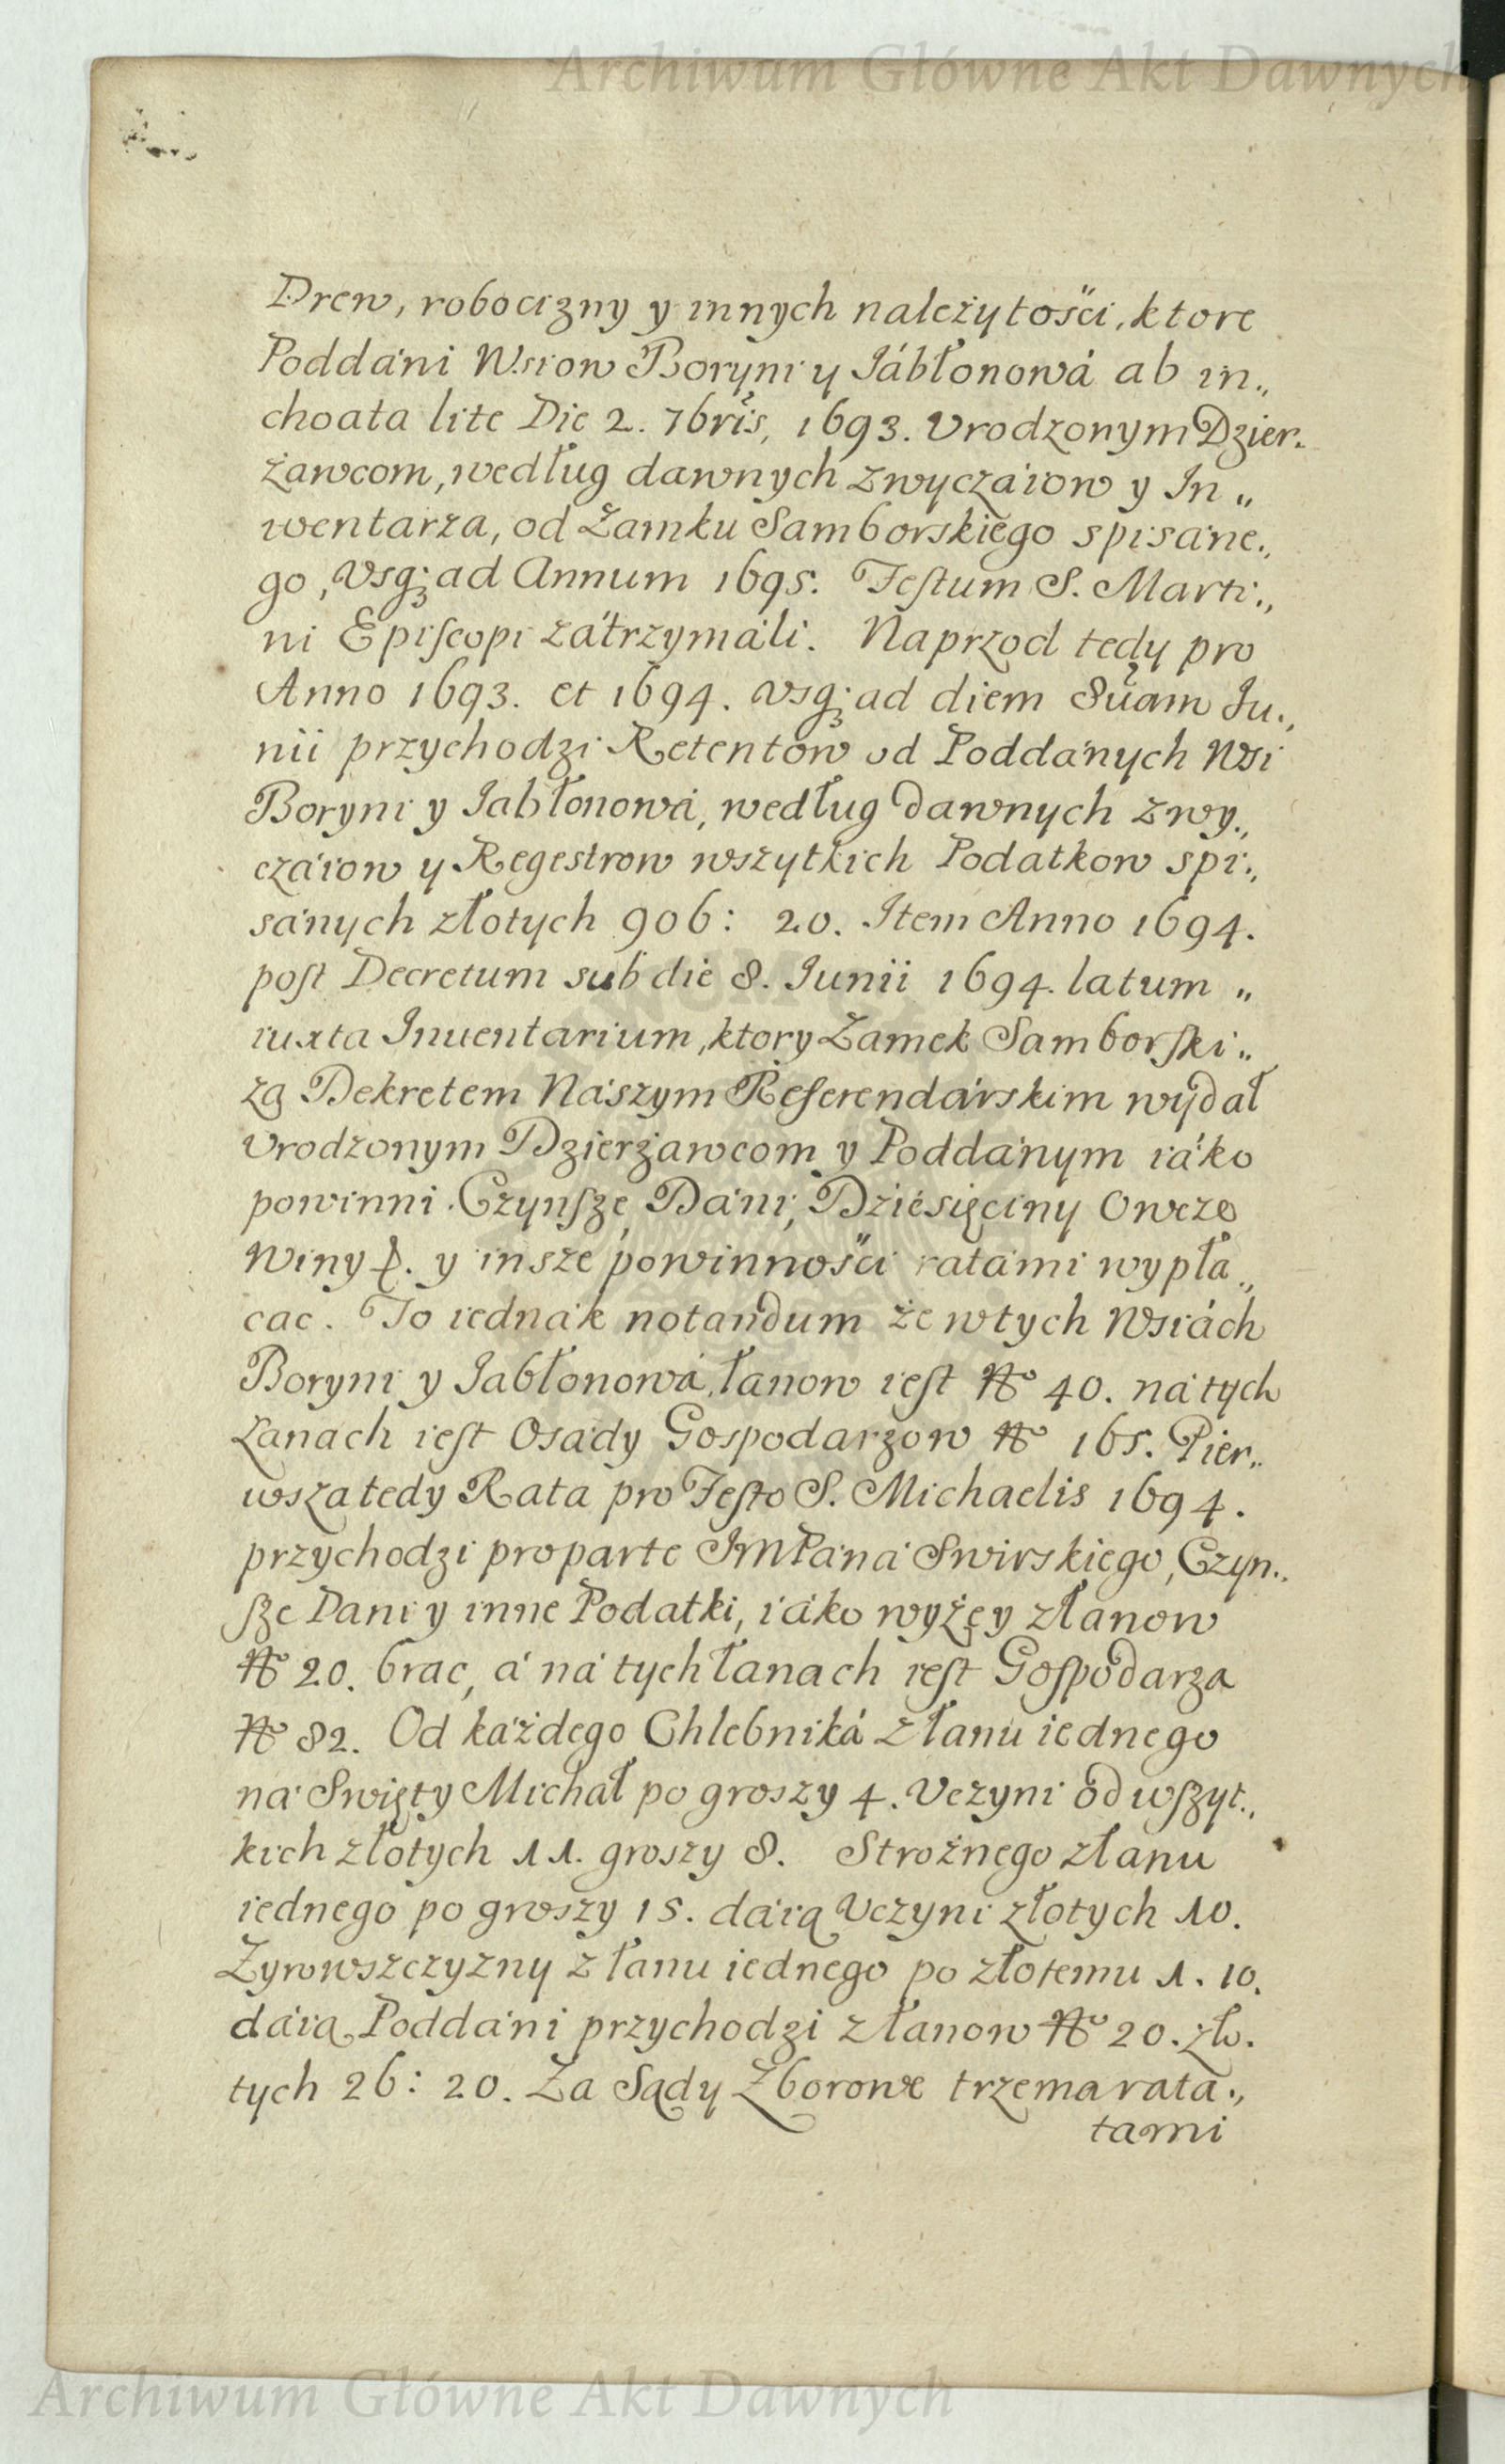 Archiwum Główne Akt Dawnych
Drew, robocizny y innych należytości, ktore
Poddáni Wsiow Boryni y Jábłonowá ab in„
choata lite Die 2. 7bris, 1693. Vrodzonym Dzier„
żawcom, według dawnych zwyczáiow y In„
wentarza, od Zamku Samborskiego spisáne„
go, Vsq; ad Annum 1695. Festum S. Marti„
ni Episcopi zátrzymáli. Naprzod tedy pro
Anno 1693. et 1694. vsq; ad diem 8uam Ju„
nii przychodzi Retentow od Poddánych Wsi
Boryni y Jabłonowá, według dawnych zwy„
czáiow y Regestrow wszytkich Podatkow spi„
sánych złotych 906: 20. Item Anno 1694.
post Decretum sub die 8. Junii 1694. latum „
iuxta Inuentarium, ktory Zamek Samborski„
zą Dekretem Nászym Referendárskim wydał
Vrodzonym Dzierżawcom y Poddánym iáko
powinni Czynsze, Dáni, Dziesięciny Owcze
Winy &. y insze powinności ratámi wypła„
cac. To iednák notandum że w tych Wsiách
Boryni y Jabłonowá, łanow iest No 40. ná tych
Łanach iest Osády Gospodarzow No 165. Pier„
wsza tedy Rata pro Festo S. Michaelis 1694.
przychodzi pro parte JMPáná Swirskiego, Czyn„
sze Dani y inne Podatki, iáko wyżęy z łanow
No 20. brac, á ná tych łanach iest Gospodarza
No 82. Od káżdego Chlebniká z łanu iednego
ná Swięty Michał po groszy 4. Vczyni od wszyt„
kich złotych 11. groszy 8. Strożnego z łanu
iednego po groszy 15. dáią Vczyni złotych 10.
Zyrowszczyzny z łanu iednego po złotemu 1. 10.
dáią Poddáni przychodzi z łanow No 20. zło.
tych 26: 20. Za Sądy Zborowe trzema rata„
tami
Archiwum Główne Akt Dawnych